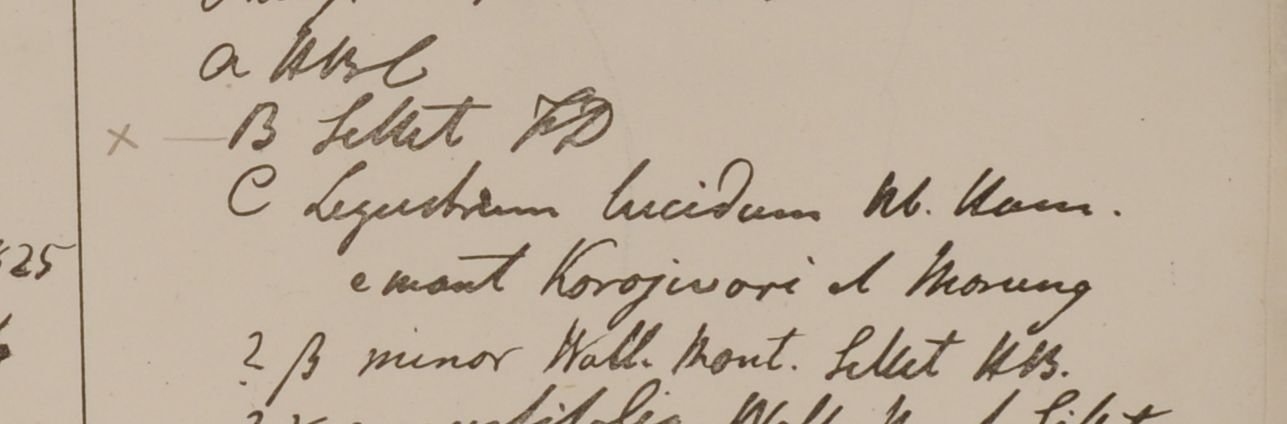 a HBC
× — B Sillet FD
C Ligustrum lucidum Hb. Ham.
e mont Korojivori et Morung
25
2 β minor Wall. Mont. Sillet HB.
Wall. Sillet